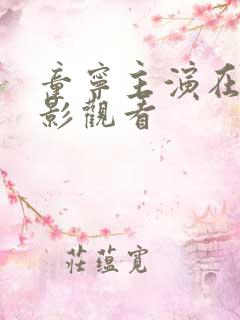 童寧主演在
影觀看
莊蘊寬